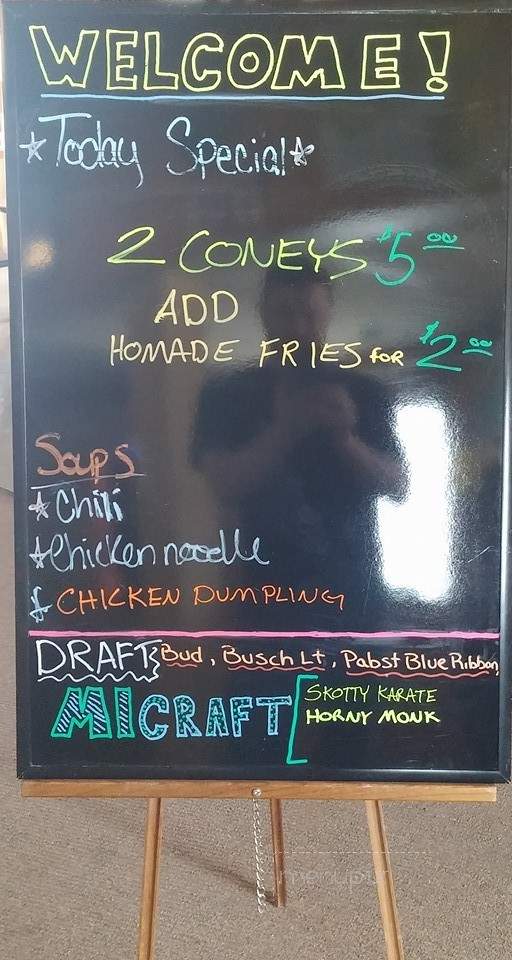 WELCOME!
☆Today Special☆
2 CONEYS $5.00
ADD
HOMADE FRIES FOR $2.00
Soups
☆Chili
☆Chicken noodle
☆ CHICKEN DUMPLING
DRAFT} Bud, Busch Lt, Pabst Blue Ribbon
MICRAFT [ SKOTTY KARATE
HORNY MONK
menupix